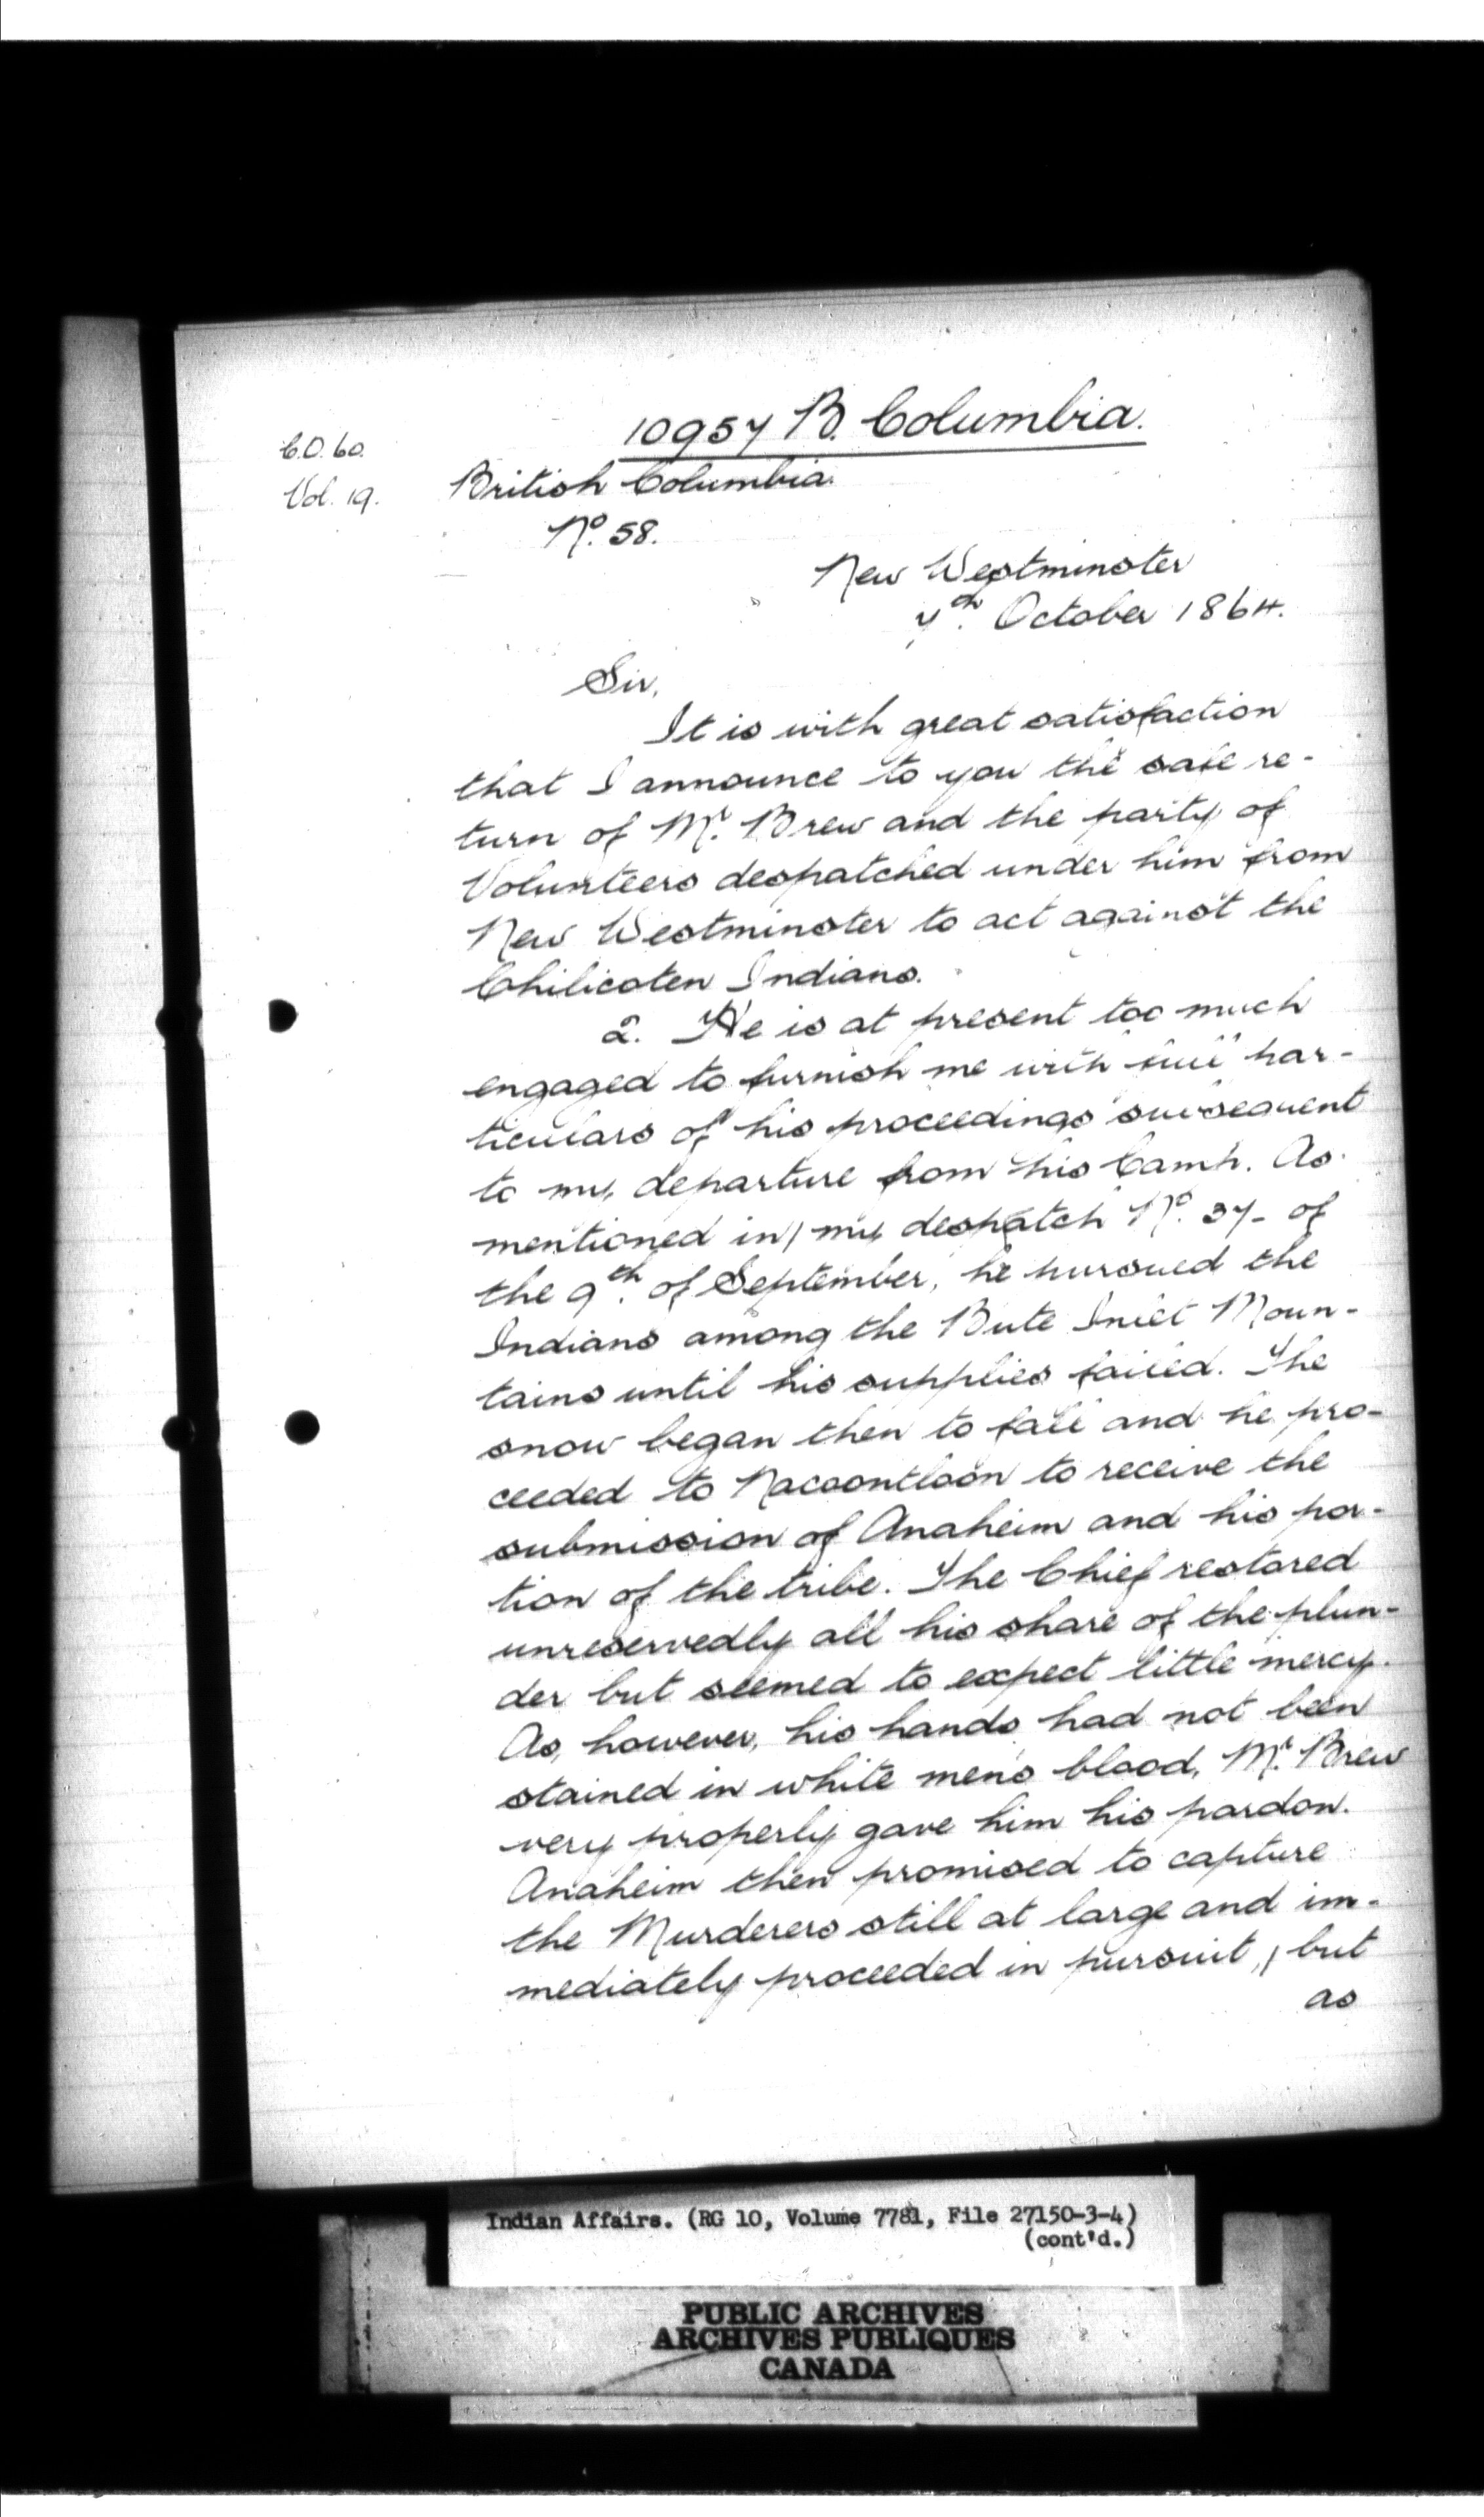 C.O. 60.
Vol. 19.
10957 B. Columbia.
British Columbia.
No. 58.
New Westminster
7th. October 1864.
Sir,
It is with great satisfaction
that I announce to you the safe re-
turn of Mr. Brew and the party of
Volunteers despatched under him from
New Westminster to act against the
Chilicoten Indians.
2. He is at present too much
engaged to furnish me with full par-
ticulars of his proceedings subsequent
to my departure from his Camp. As
mentioned in my despatch No. 37- of
the 9th. of September, he pursued the
Indians among the Bute Inlet Moun-
tains until his supplies failed. The
snow began then to fall and he pro-
ceeded to Nacoontloon to receive the
submission of Anaheim and his por-
tion of the tribe. The Chief restored
unreservedly all his share of the plun-
der but seemed to expect little mercy.
As, however, his hands had not been
stained in white men's blood, Mr. Brew
very properly gave him his pardon.
Anaheim then promised to capture
the Murderers still at large and im-
mediately proceeded in pursuit, but
as
Indian Affairs. (RG 10, Volume 7781, File 27150-3-4)
(cont'd.)
PUBLIC ARCHIVES
ARCHIVES PUBLIQUES
CANADA